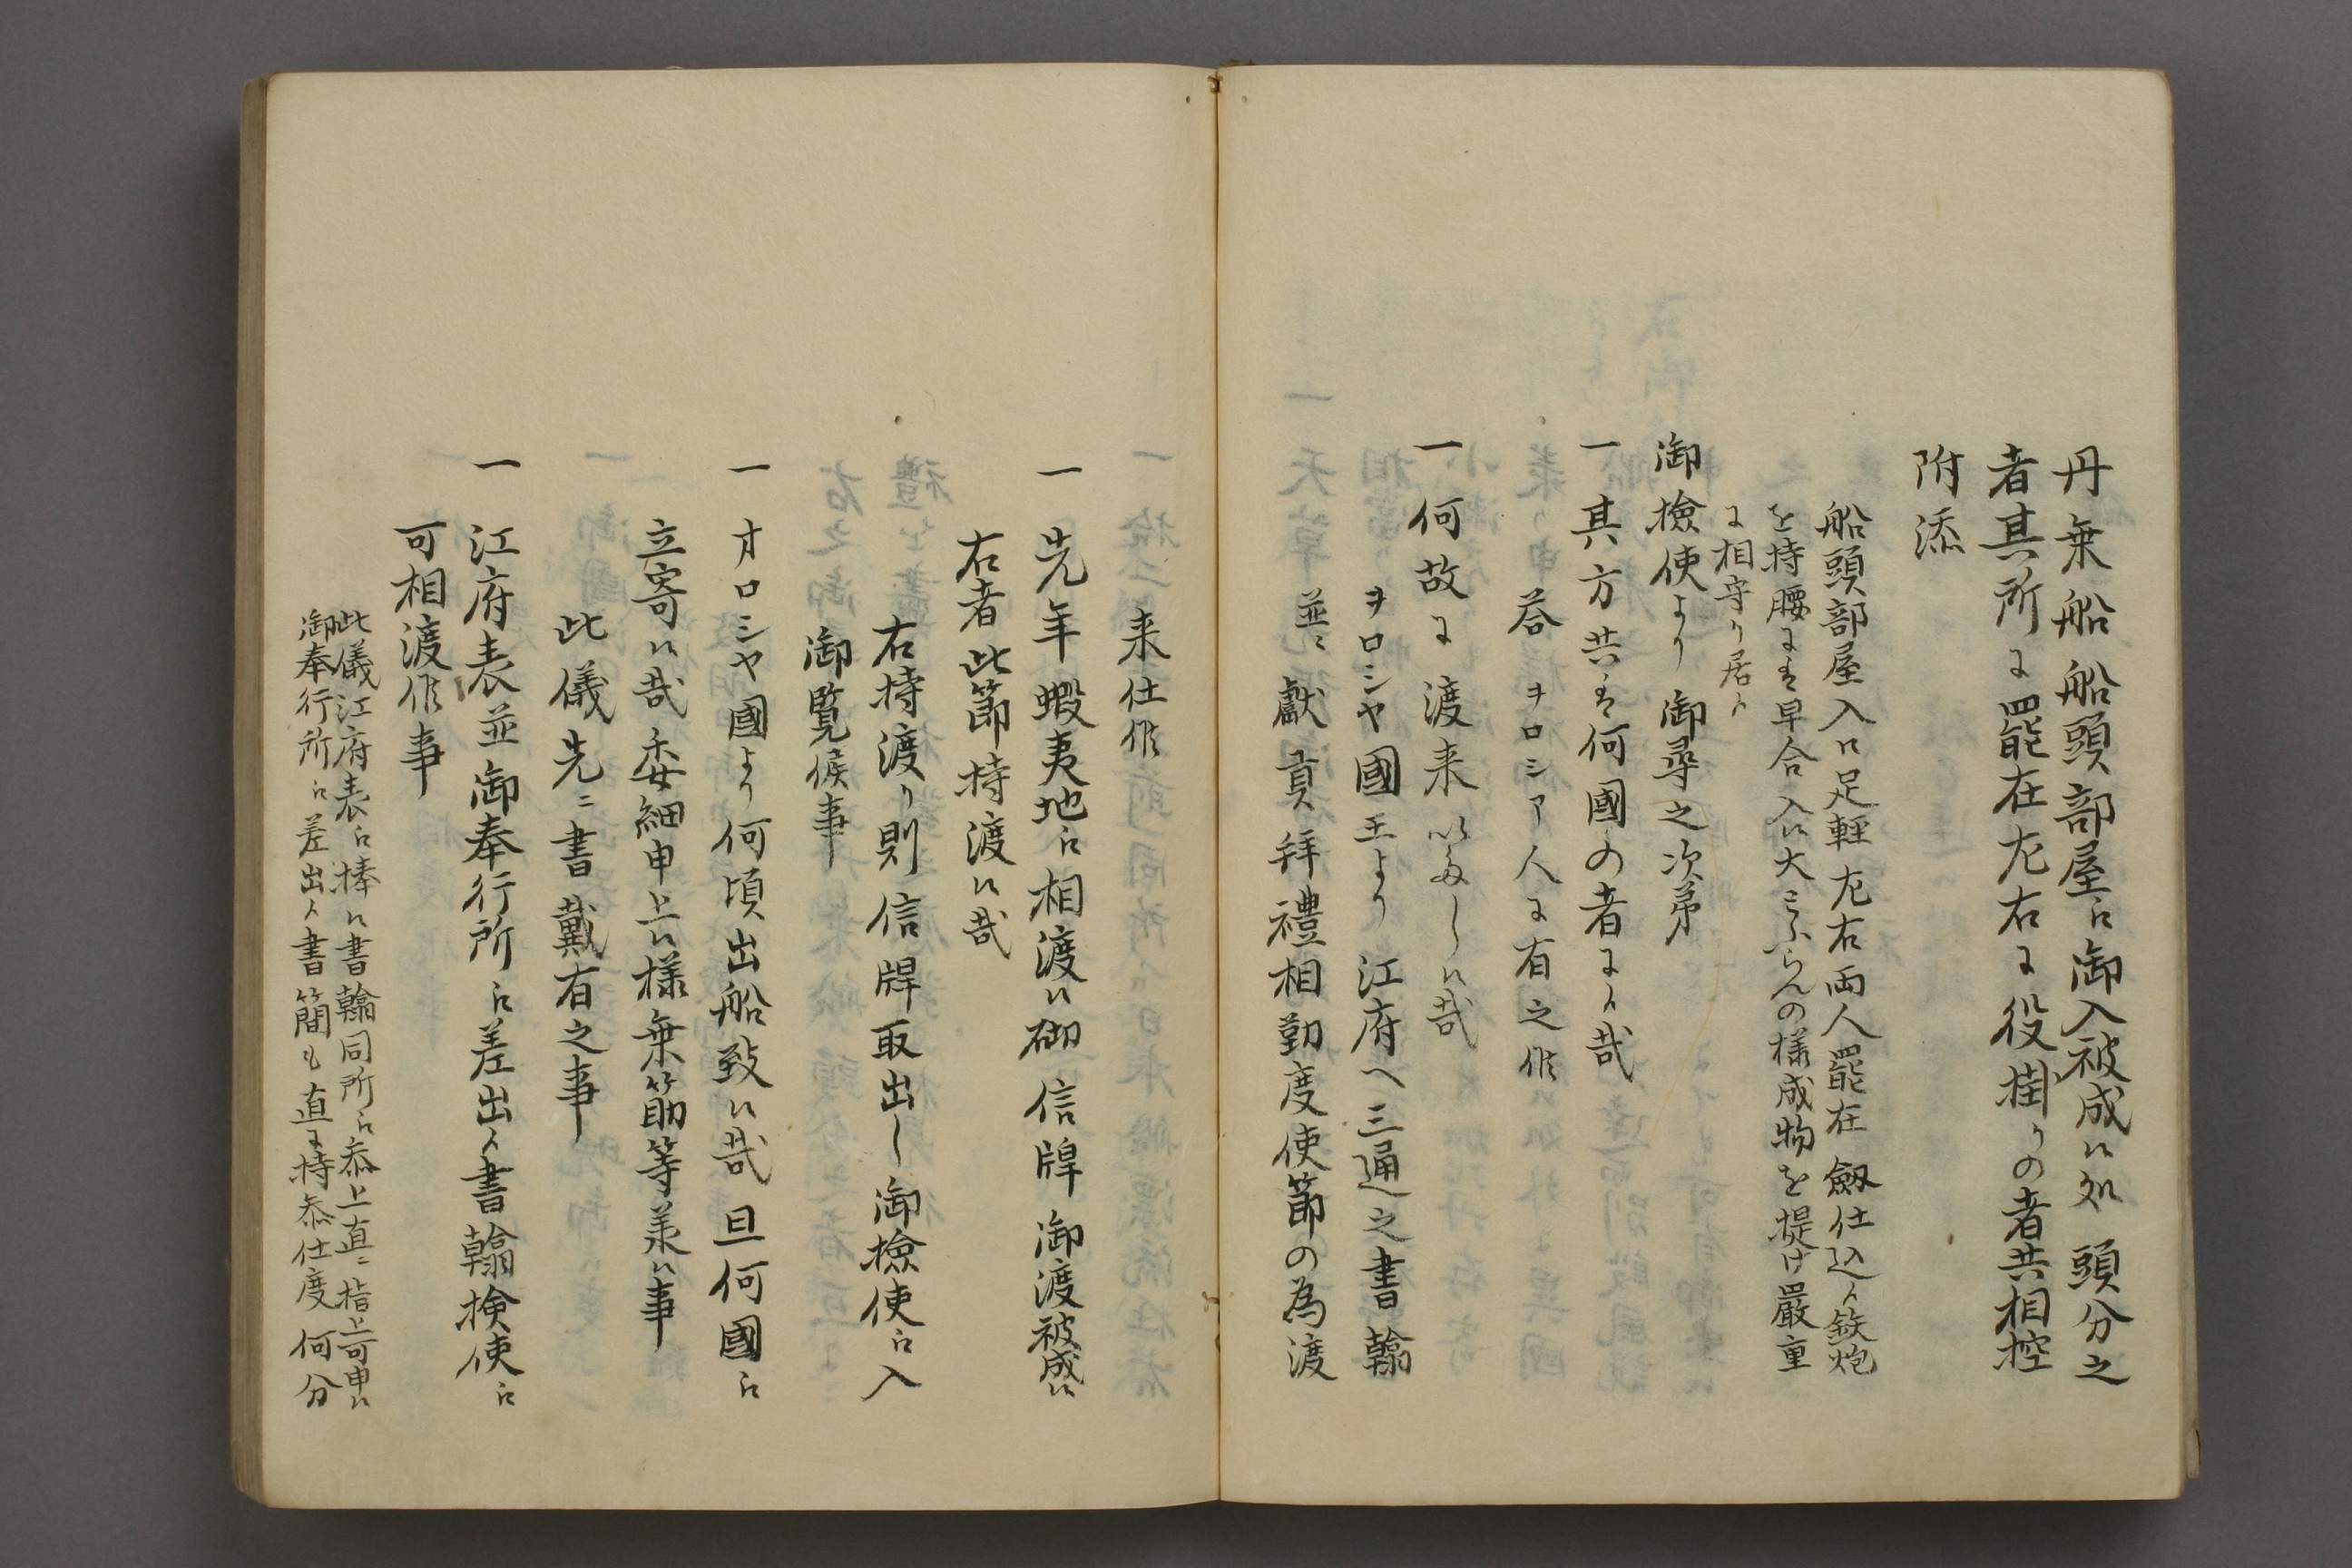 丹乗船船頭部屋江御入被成候処頭分之
者其所に罷在左右に役掛りの者共相控
附添
船頭部屋入口足軽左右両人罷在劔仕込候鉄炮
を持腰にも早合入候大こふらんの様成物を提け厳重
に相守り居候
御検使より御尋之次第
一其方共も何國の者に候哉
荅ヲロシア人に有之候
一何故に渡来いたし候哉
ヲロシヤ國王より江府へ三通之書翰
並ニ獻貢拝禮相勤度使節の為渡
来仕候
一先年蝦夷地江相渡候砌信牌御渡被成候
右者此節持渡候哉
右持渡り則信牌取出し御検使江入
御覧候事
一ヲロシヤ國より何頃出船致候哉且何國江
立寄候哉委細申上候様乗筋等義候事
此儀先ニ書戴有之事
一江府表並御奉行所江差出候書翰検使江
可相渡候事
此儀江府表江捧候書翰同所江恭上直ニ指上可申候
御奉行所江差出候書簡も直に持恭仕度何分